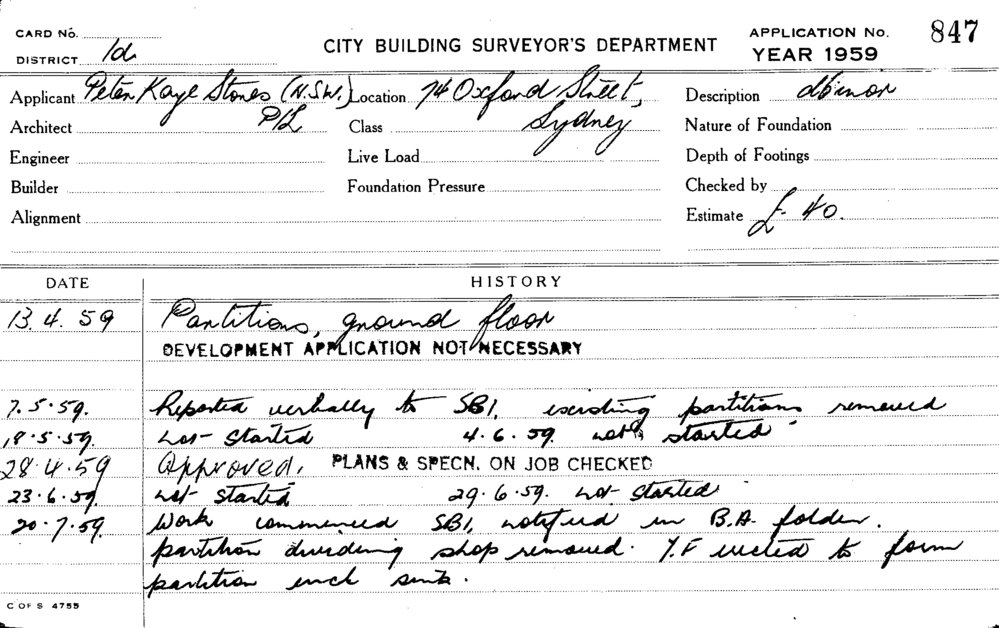 CARD No.
DISTRICT 1d
CITY BUILDING SURVEYOR'S DEPARTMENT
APPLICATION No. 847
YEAR 1959
Applicant Peter Kaye Stores (N.S.W.) P/L
Location 74 Oxford Street, Sydney
Description Minor
Architect
Class
Nature of Foundation
Engineer
Live Load
Depth of Footings
Builder
Foundation Pressure
Checked by
Alignment
Estimate £ 40.
DATE HISTORY
13. 4. 59 Partitions, ground floor
DEVELOPMENT APPLICATION NOT NECESSARY
7. 5. 59. Reported verbally to SBI, existing partitions removed
18. 5. 59. not started 4. 6. 59. not started
28. 4. 59 Approved. PLANS & SPECN. ON JOB CHECKED
23. 6. 59. not started 29. 6. 59. not started
20. 7. 59. Work commenced SBI, notified in B.A. folder.
partition dividing shop removed. T.F erected to form
partition
C OF S 4755